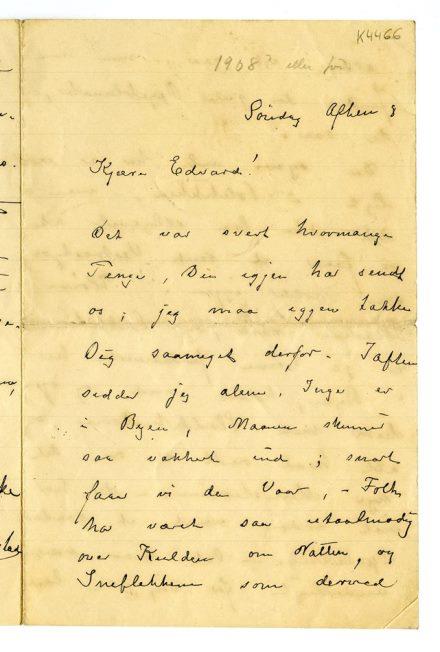 K4466
1908? eller før
Søndag Aften
Kjære Edvard!
Det var svert hvormange
Penge, Du igjen har sendt
os; jeg maa iggen takke
Dig saameget derfor – Iaften
sidder jeg alene, Inger er
i Byen, Maanen skinner
saa vakkert ind; snart
faar vi da Vaar, – Folk
har været saa utaalmodig
over Kulden om Natten, og
Sneflekkene som derved